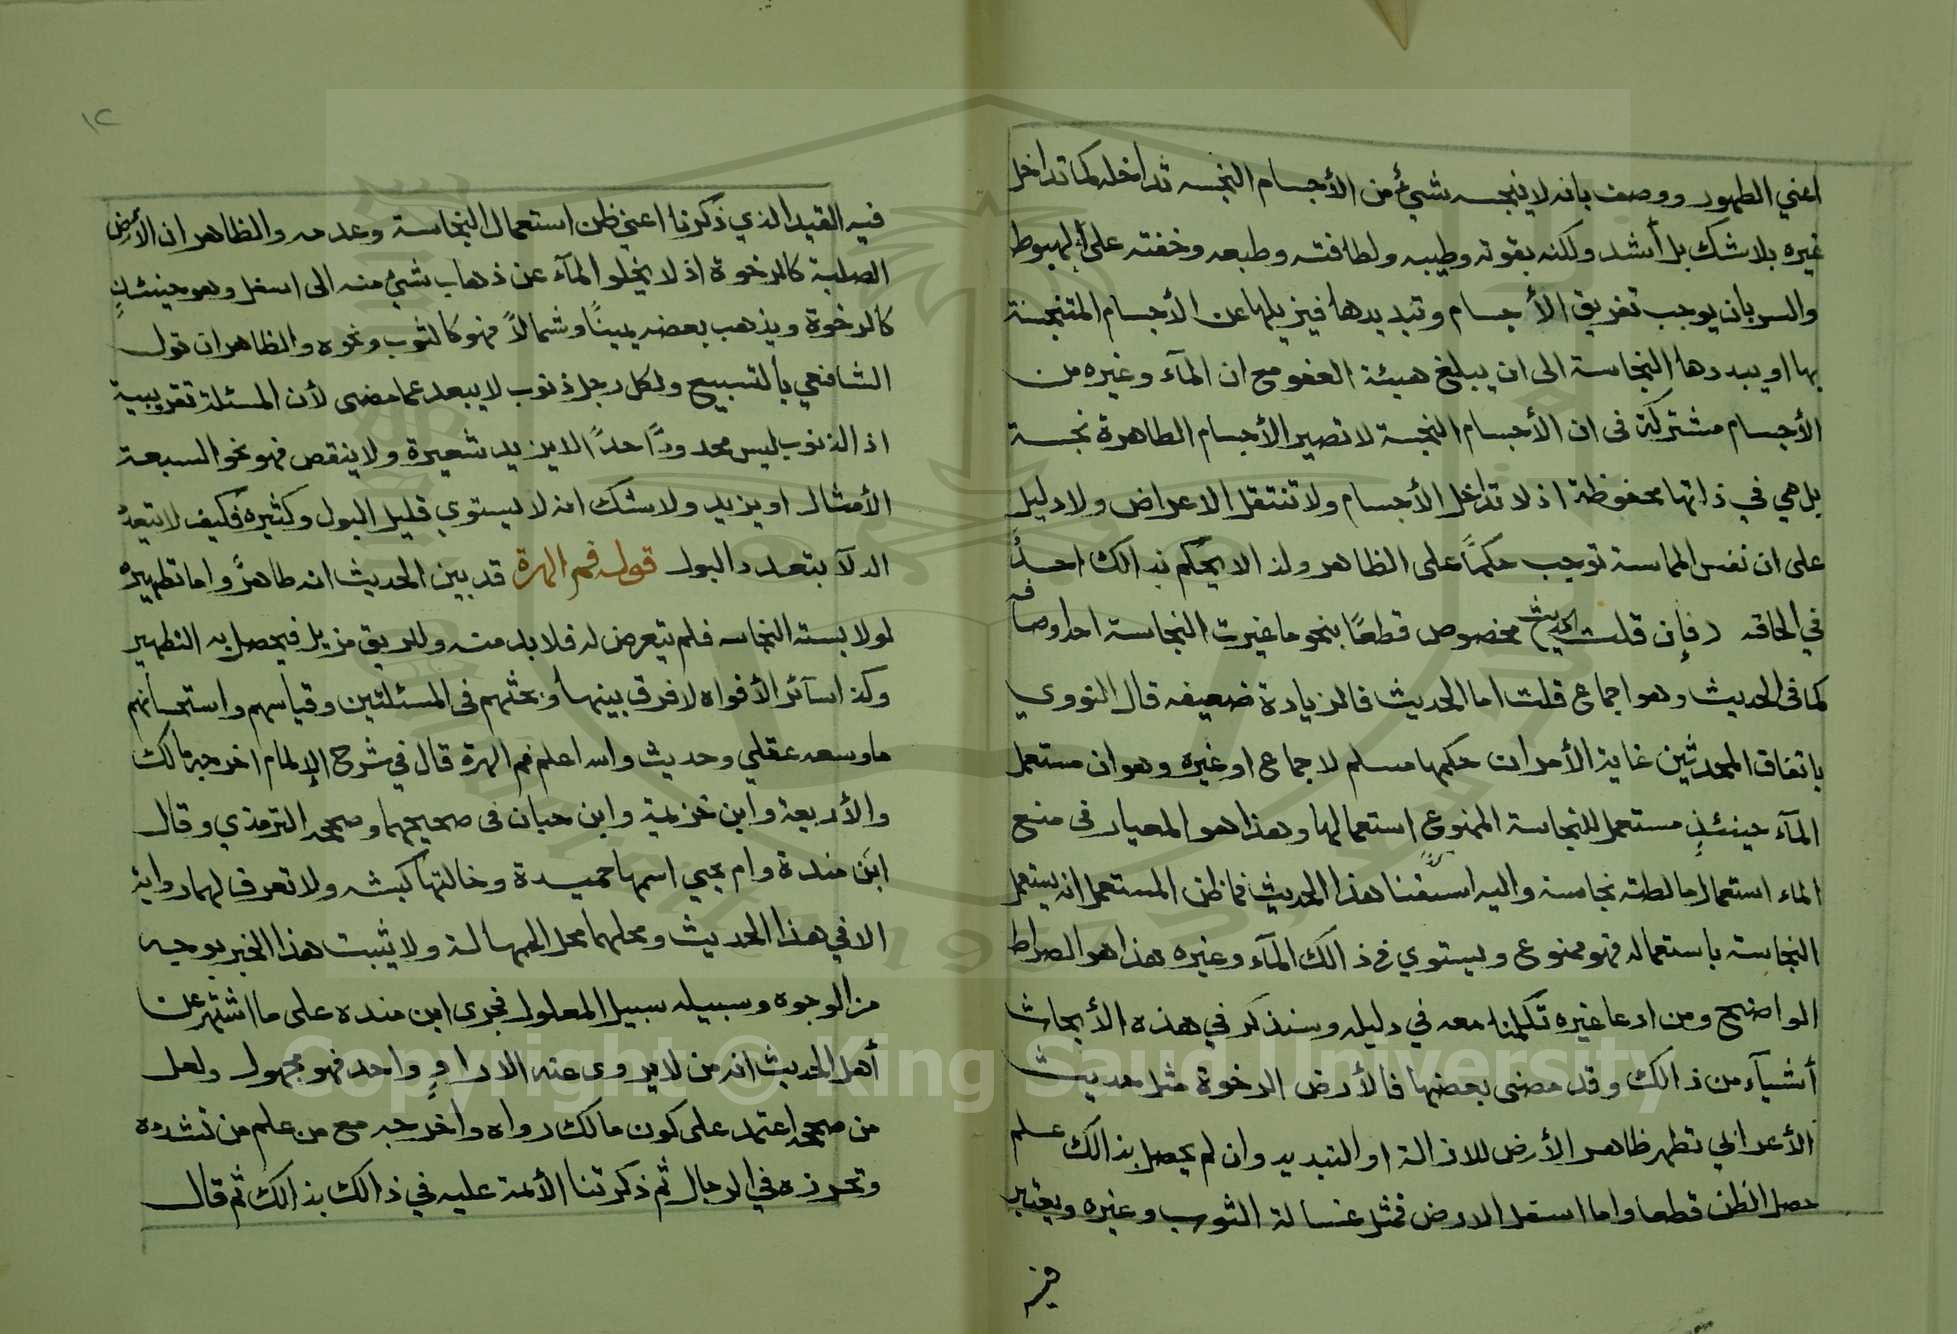 اعني الطهور ووصف بانه لا ينجسه شيئ من الأجسام النجسه تداخله كما تداخل
غيره بلا شك بل أشد ولكنه بقوته وطيبه ولطافته وطبعه وخفته على الهبوط
والسريان يوجب تفريق الأجسام وتبديدها فيزيلها عن الأجسام المتنجسة
بها او يبددها النجاسة الى ان يبلغ هيئة العفو مع ان المآء وغيره من
الأجسام مشتركة فى ان الأجسام النجسة لا تصير الأجسام الطاهرة نجسة
بل هي في ذاتها محفوظة اذ لا تداخل الأجسام ولا تنتقل الاعراض ولا دليل
على ان نفس المماسة توجب حكمًا على الظاهر ولذ الا يحكم بذالك احدٌ
في الحاقه فإن قلت الحديث مخصوص قطعًا بنحو ما غيرت النجاسة احد اوصافه
كما فى الحديث وهو اجماع قلت اما الحديث فالزيادة ضعيفه قال النووي
باتفاق المحدثين غاية الأمر ان حكمها مسلم لاجماع او غيره وهو ان مستعمل
المآء حينئذٍ مستعمل للنجاسة الممنوع استعمالها وهذا هو المعيار فى منع
الماء استعمال مالطته نجاسة واليه هذا الحديث فما ظن المستعمل انه يستعمل
النجاسة باستعماله فهو ممنوع ويستوي في ذالك المآء وغيره هذا هو الصراط
الواضح ومن ادعا غيره تكلمنا معه في دليله وسنذكر في هذه الأبحاث
أشيآء من ذالك وقد مضى بعضها فالأرض الرخوة مثل حديث
الأعرابي تطهر ظاهر الأرض للازالة او التبديد وان لم يحصل بذالك علم
حصل الظن قطعا واما اسفل الارض فمثل غسالة الثوب وغيره ويعتبر
فيه
١٢
فيه القيد الذي ذكرنا اعني ظن استعمال النجاسة وعدمه والظاهر ان الأرض
الصلبة كالرخوة اذ لا يخلو المآء عن ذهاب شيئ منه الى اسفل وهو حينئذٍ
كالرخوة ويذهب بعضه يمينًا وشمالاً فهو كالثوب ونحوه والظاهر ان قول
الشافعي بالتسبيع ولكل رجل ذنوب لا يبعد عما مضى لأن المسئلة تقريبية
اذ الذنوب ليس محدودًا حدًا لا يزيد شعيرة ولا ينقص فهو نحو السبعة
الأمثال او يزيد ولا شك انه لا يستوي قليل البول وكثيره فكيف لا يتعدد
الدلآ بتعدد البول قوله فم الهرة قد بين الحديث انه طاهرٌ واما تطهيره
لو لابسته النجاسه فلم يتعرض له فلا بد منه وللريق مزيل فيحصل به التطهير
وكذا سآئر الأفواه لا فرق بينها وبحثهم فى المسئلتين وقياسهم واستحسانهم
ما وسعه عقلي وحديث والله اعلم فم الهرة قال في شرح الإلمام اخرجه مالك
والأربعة وابن خزيمة وابن حبان فى صحيحهما وصححه الترمذي وقال
ابن مندة وام يحيى اسمها حميدة وخالتها كبشه ولا تعرف لهما رواية
الا في هذا الحديث ومحلهما محل الجهالة ولا يثبت هذا الخبر بوجه
من الوجوه وسبيله سبيل المعلول فجرى ابن منده على ما اشتهر عن
أهل الحديث انه من لا يروى عنه الا راوٍ واحد فهو مجهول ولعل
من صححه اعتمد على كون مالك رواه واخرجه مع من علم من تشدده
وتحرزه في الرجال ثم ذكر ثنا الأئمة عليه في ذالك بذالك ثم قال